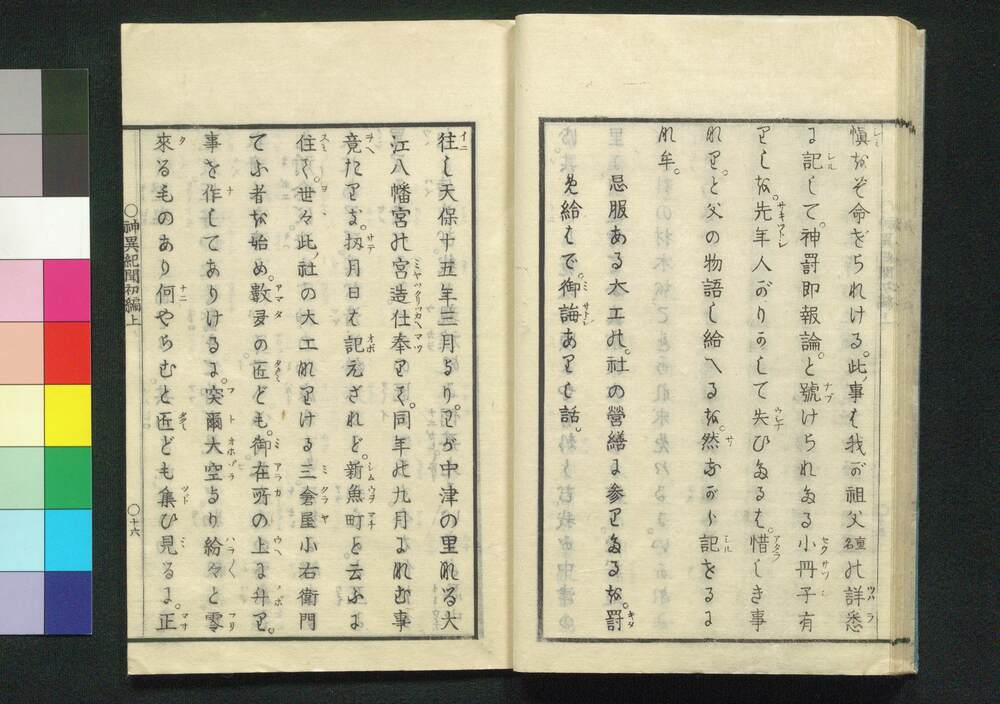 愼なぞ命ぢられける。此事も我が祖父重名の詳悉
に記して。神罰即報論と號けられたる小冊子有
りしな。先年人がりかして失ひたるも。惜しき事
れり。と父の物語し給へるな。然ながら記さるに
れ牟。
忌服ある大工の。社の營繕に參りたるな。罰
め給もで。御誨ありし話。
往し天保十五年三月より。りが中津の里れる大
江八幡宮の宮造仕奉りて。同年の九月にれむ事
竟たりき。扨月日も記えざれど。新魚町と云ふに
住て。世々此社の大工れりける三倉屋小右衛門
てふ者な始め。數多の匠ども。御在所の上に升り。
事を作してありけるに。突爾大空より紛々と零
來るものあり何やらむと匠ども集ひ見るに。正
○神異紀聞初編上
○十六